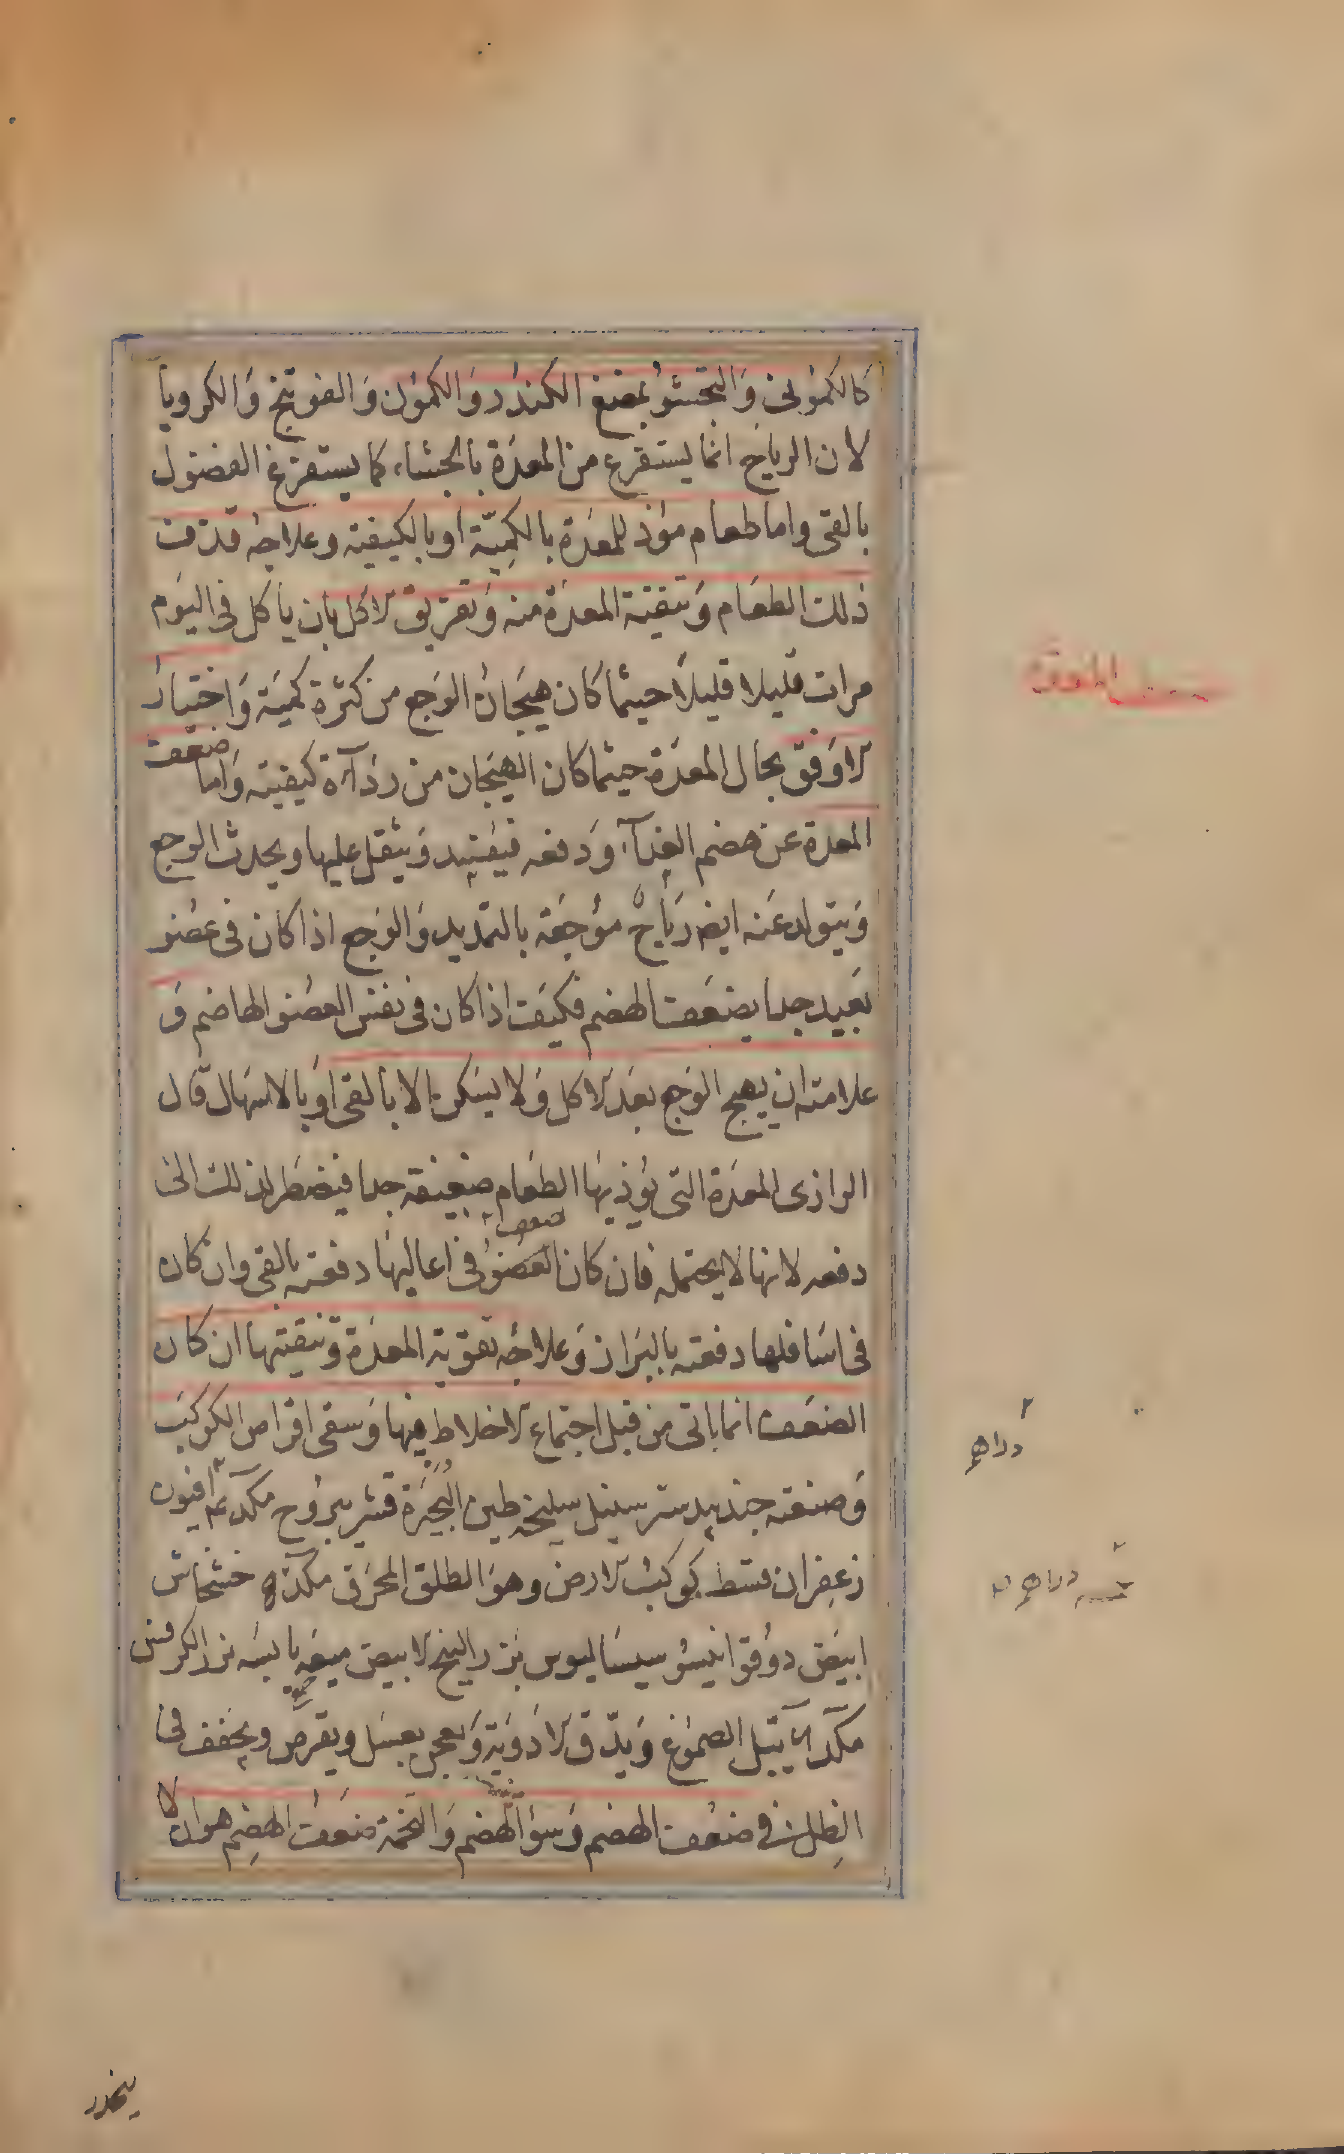 كالكموني والتجشؤ بمضغ الكندر والكمون والفوتنج والكرويا
لان الرياح انما يستفرغ من المعدة بالجشاء كما يستفرغ الفضول
بالقى واما طعام موذ للمعدة بالكمية او بالكيفية وعلاجه قذف
ذلك الطعام وتنقية المعدة منه وتفريق الاكل بان ياكل فى اليوم
مرات قليلا قليلا حيثما كان هيجان الوجع من كثرة كمية واختيار
الاوفق بحال المعدة حيثما كان الهيجان من ردآءة كيفيته واما ضعف
المعدة عن هضم الغذآء ودفعه فيفسد ويثقل عليها ويحدث الوجع
ويتولد عنه ايضا رياح موجعة بالتمديد والوجع اذا كان فى عضو
بعيد جدا يضعف الهضم فكيف اذا كان فى نفس العضو الهاضم و
علامته ان يهيج الوجع بعد الاكل ولا يسكن الا بالقى او بالاسهال قال
الرازى المعدة التى يؤذيها الطعام ضعيفة جدا فيضطر لذلك الى
دفعه لانها لا يحتمله فان كان العضو ضعف فى اعاليها دفعته بالقى وان كان
فى اسافلها دفعته بالبراز وعلاجه تقوية المعدة وتنقيتها ان كان
الضعف انما ياتى من قبل اجتماع الاخلاط فيها وسقى اقراص الكوكب
وصنعته جندبيدستر سنبل سليخه طين البحيرة قشر يبروح مكد افيون
زعفران قسط كوكب الارض وهو الطلق المحرق مكد خشخاش
ابيض دوقو انيسو سيساليوس بزر البنج الابيض ميعه يابسه بزر الكرفس
مكد يبل الصموغ ويدق الادوية ويعجن بعسل ويقرص ويجفف فى
الظل فى ضعف الهضم وسوء الهضم والتخمة ضعف الهضم هو ان لا
المعدة
دراهم
دراهم
ينحدر